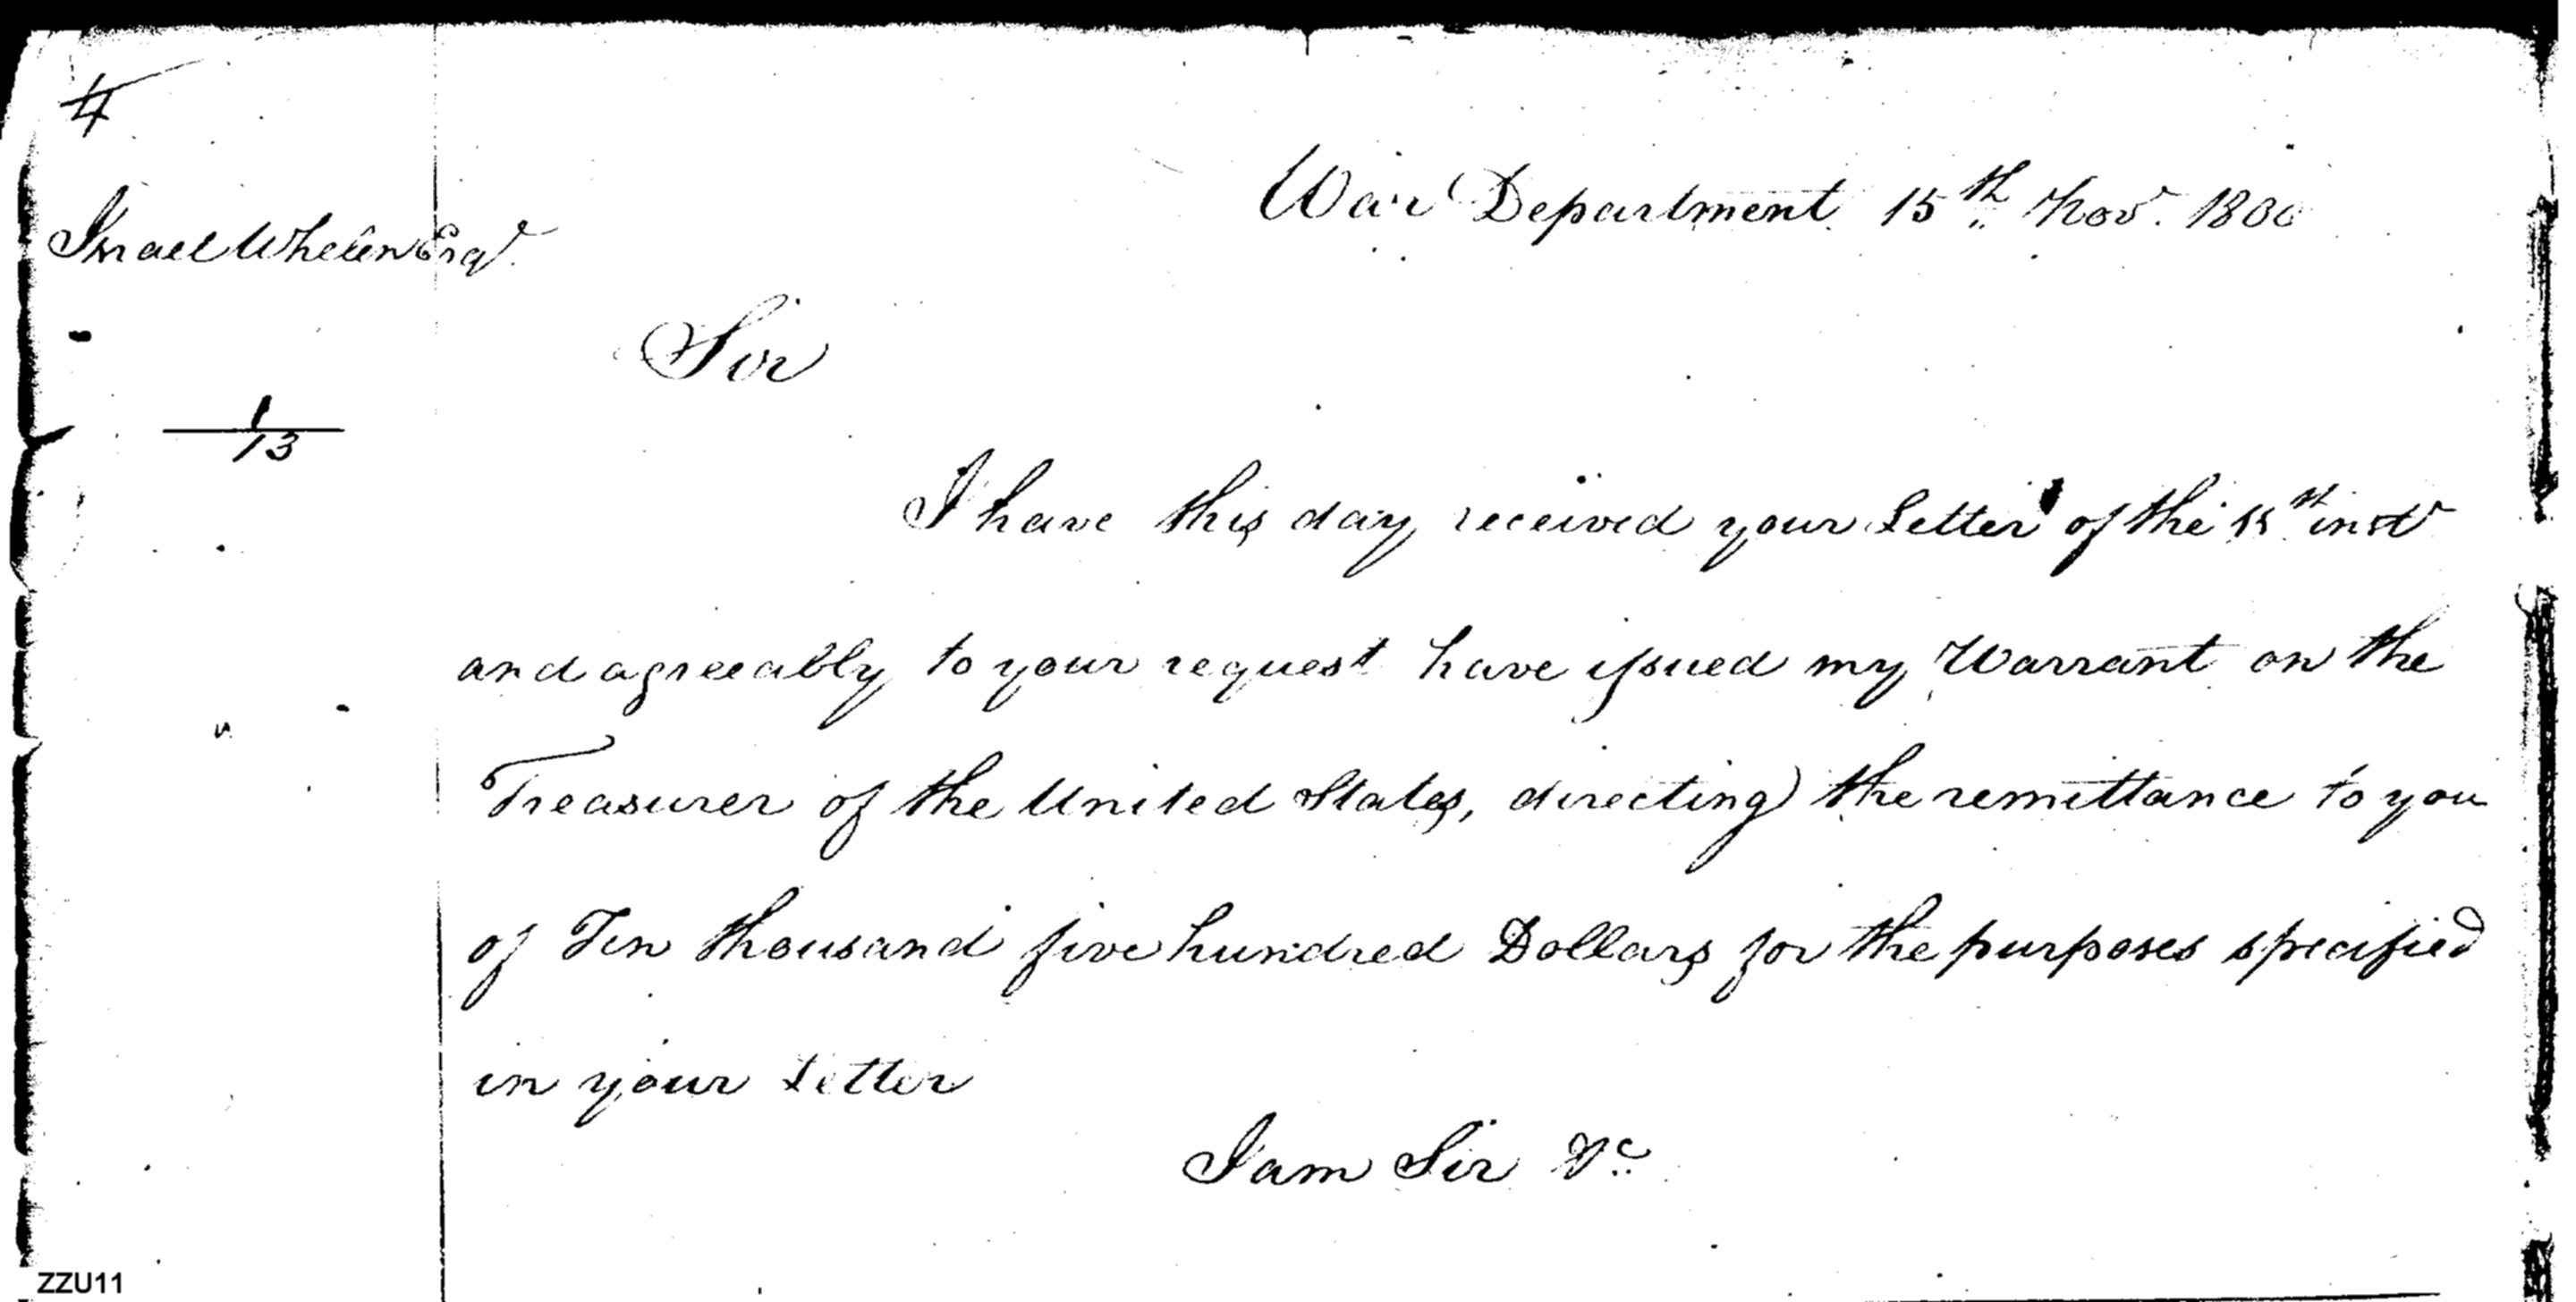 4
War Department 15th Nov. 1800
Israel Whelen Esqr.
Sir
1
13
I have this day received your Letter of the 11th inst
and agreeably to your request have issued my Warrant on the
Treasurer of the United States, directing the remittance to you
of Ten thousand five hundred Dollars for the purposes specified
in your Letter
I am Sir &c.
ZZU11